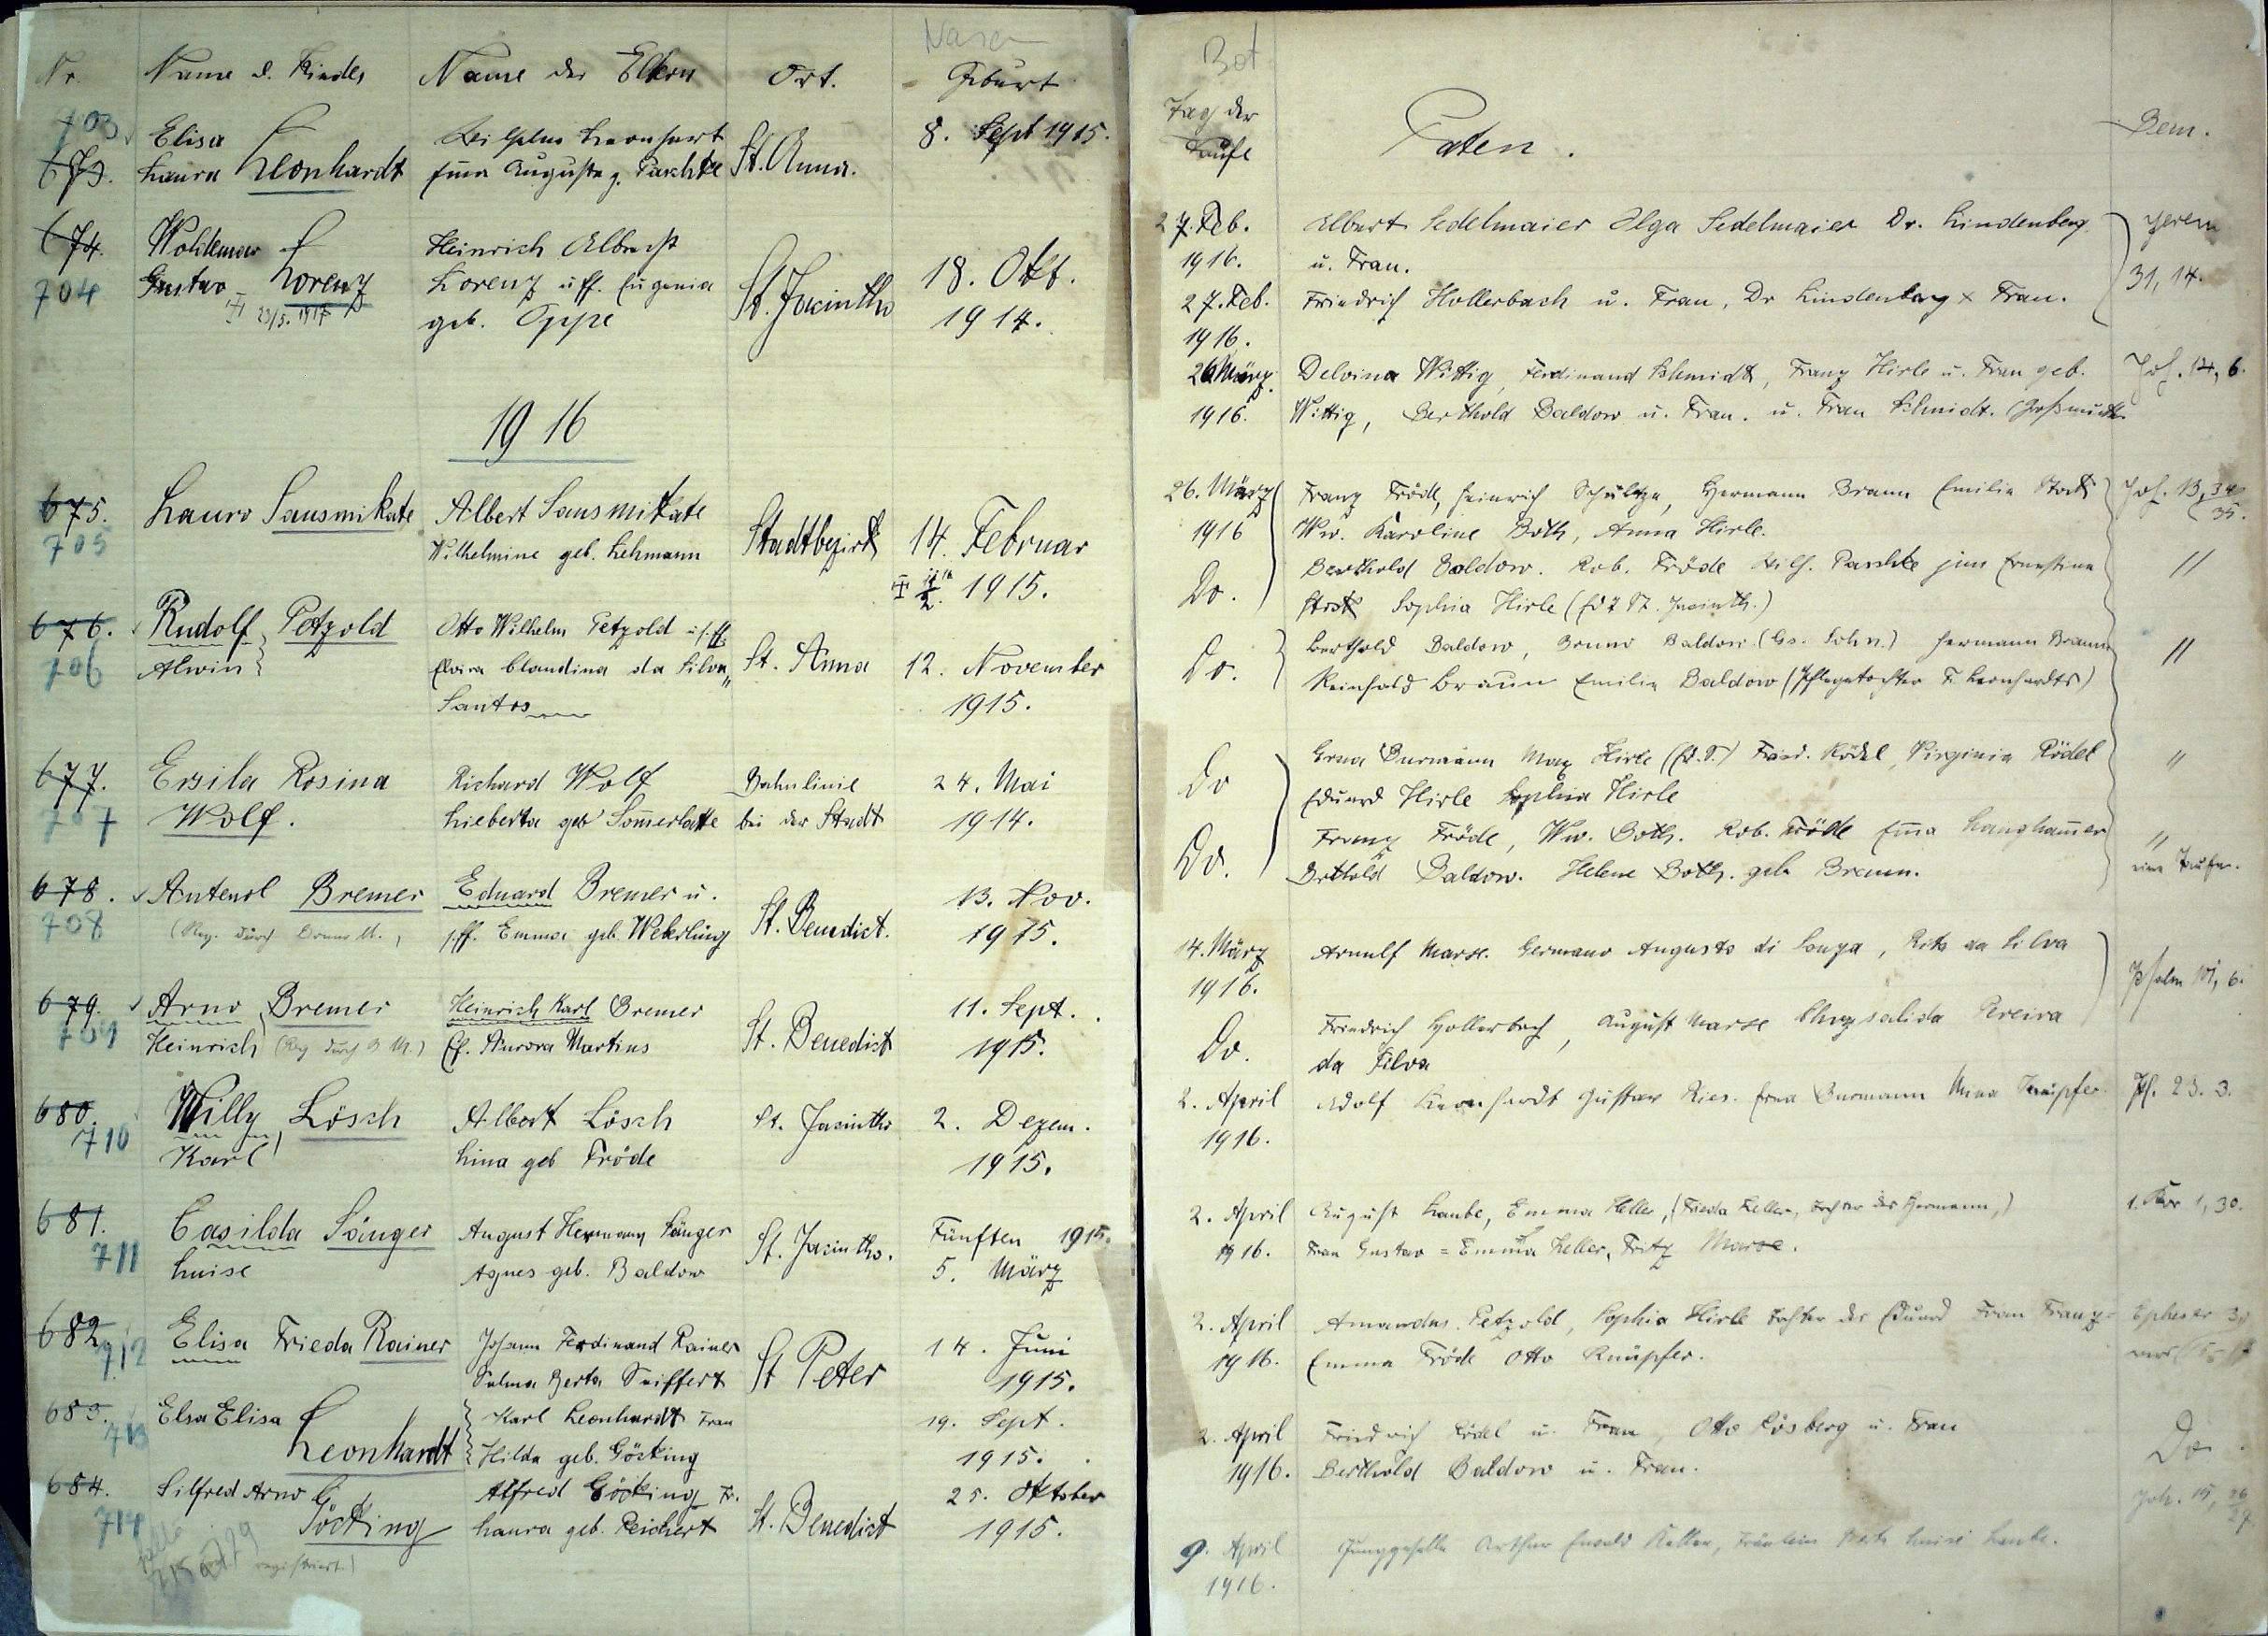 Nasc
Nr. Name d. Kindes Name der Eltern Ort. Geburt
703
673.
Elisa
Laura Leonhardt
Wilhelm Leonhart
Emma Auguste g. Paschke
St. Anna.
8. Sept 1915.
674.
704
Woldemar
Gustav Lorenz
23/5. 1917
Heinrich Albrecht
Lorenz u. Ehfr. Eugenia
geb. Oppe
St. Jacintho
18. Okt.
1914.
1916
675.
705
Lauro Sausmikate
Albert Sausmikate
Wilhelmine geb. Lehmann
Stadtbezirk
14. Februar
1915.
676.
706
Rudolf Petzold
Alwin
Otto Wilhelm Petzold
Elvira Claudina da Silva
Santos
St. Anna
12. November
1915.
677.
707
Ersila Rosina
Wolf.
Richard Wolf
Lieberta geb Sommerlatte
Bahnlinie
bei der Stadt
24. Mai
1914.
678.
708
Antenol Bremer
(Reg. durch Bruno M.,
Eduard Bremer u.
Emma geb. Wekerling
St. Benedict.
13. Nov.
1915.
679.
709
Arno Bremer
Heinrich (Reg durch B M.)
Heinrich Karl Bremer
Ef. Aurora Martins
St. Benedict
11. Sept.
1915.
680.
710
Willy Lösch
Karl
Albert Lösch
Lina geb Fröde
St. Jacintho
2. Dezem.
1915.
681.
711
Casilda Sänger
Luise
August Hermann Sänger
Agnes geb. Baldow
St. Jacintho.
Fünften 1915.
5. März
682
712
Elisa Frieda Rainer
Johann Ferdinand Rainer
Selma Berta Seiffert
St Peter
14. Juni
1915.
683.
713
Elsa Elisa
Leonhardt
Karl Leonhardt Frau
Hilda geb. Göcking
19. Sept.
1915.
684.
714
Silfred Arno
Göcking
registriert.)
Alfred Göcking Fr.
Laura geb. Reichert
St. Benedict
25. Oktober
1915.
Bat
Tag der
Taufe
Paten.
Bem.
27. Feb.
1916.
Albert Sedelmaier Olga Sedelmaier Dr. Lindenberg
u. Frau.
Jerem
31, 14.
27. Feb.
1916.
Friedrich Hollerbach u. Frau, Dr Lindenberg x Frau.
26 März
1916.
Delvina Wittig, Ferdinand Schmidt, Franz Hirle u. Frau geb.
Wittig, Berthold Baldow u. Frau. u. Frau Schmidt. Großmutter
Joh. 14, 6.
26. März
1916
Franz Fröde, Heinrich Schultze, Hermann Braun Emilie
Ww. Karoline Both, Anna Hirle.
Joh. 13, 34
35.
Do.
Berthold Baldow. Rob. Fröde Wilh. Paschke jun Ernestine
Sophia Hirle (Ed St. Jacinth.)
"
Do.
Berthold Baldow, Bruno Baldow (Gs. Sohn.) Hermann Braun
Reinhold Braun Emilie Baldow (Pflegetochter F. Leonhardts)
"
Do
Erna Burmann Max Hirle (Ed. S.) Fried. Rödel, Virginia Rödel
Eduard Hirle Sophia Hirle
"
Do.
Franz Fröde, Ww. Both. Rob. Fröde Emma Langhammer
Berthold Baldow. Helene Both. geb Braun.
"
14. März
1916.
Arnulf Marse. Germano Augusto di Souza, Rita da Silva
Psalm 101, 6.
Do.
Friedrich Hollerbach, August Marse Chrysalida Pereira
da Silva
2. April
1916.
Adolf Leonhardt Gustav Ries. Erna Burmann Anna Knüpfer.
Ps. 23. 3.
2. April
1916.
August Laube, Emma Keller, (Frieda Keller, Tochter des Hermann,)
Frau Gustav = Emma Keller, Fritz Marse.
1. Kor 1, 30.
2. April
1916.
Amandus Petzold, Sophia Hirle Tochter des Eduard Frau Franz
Emma Fröde Otto Knüpfer.
Epheser
2. April
1916.
Friedrich Rödel u. Frau, Otto Rösberg u. Frau
Berthold Baldow u. Frau.
Do.
9. April
1916.
Junggeselle Arthur Ewald Keller, Fräulein Luise Laube.
Joh. 15, 26
27